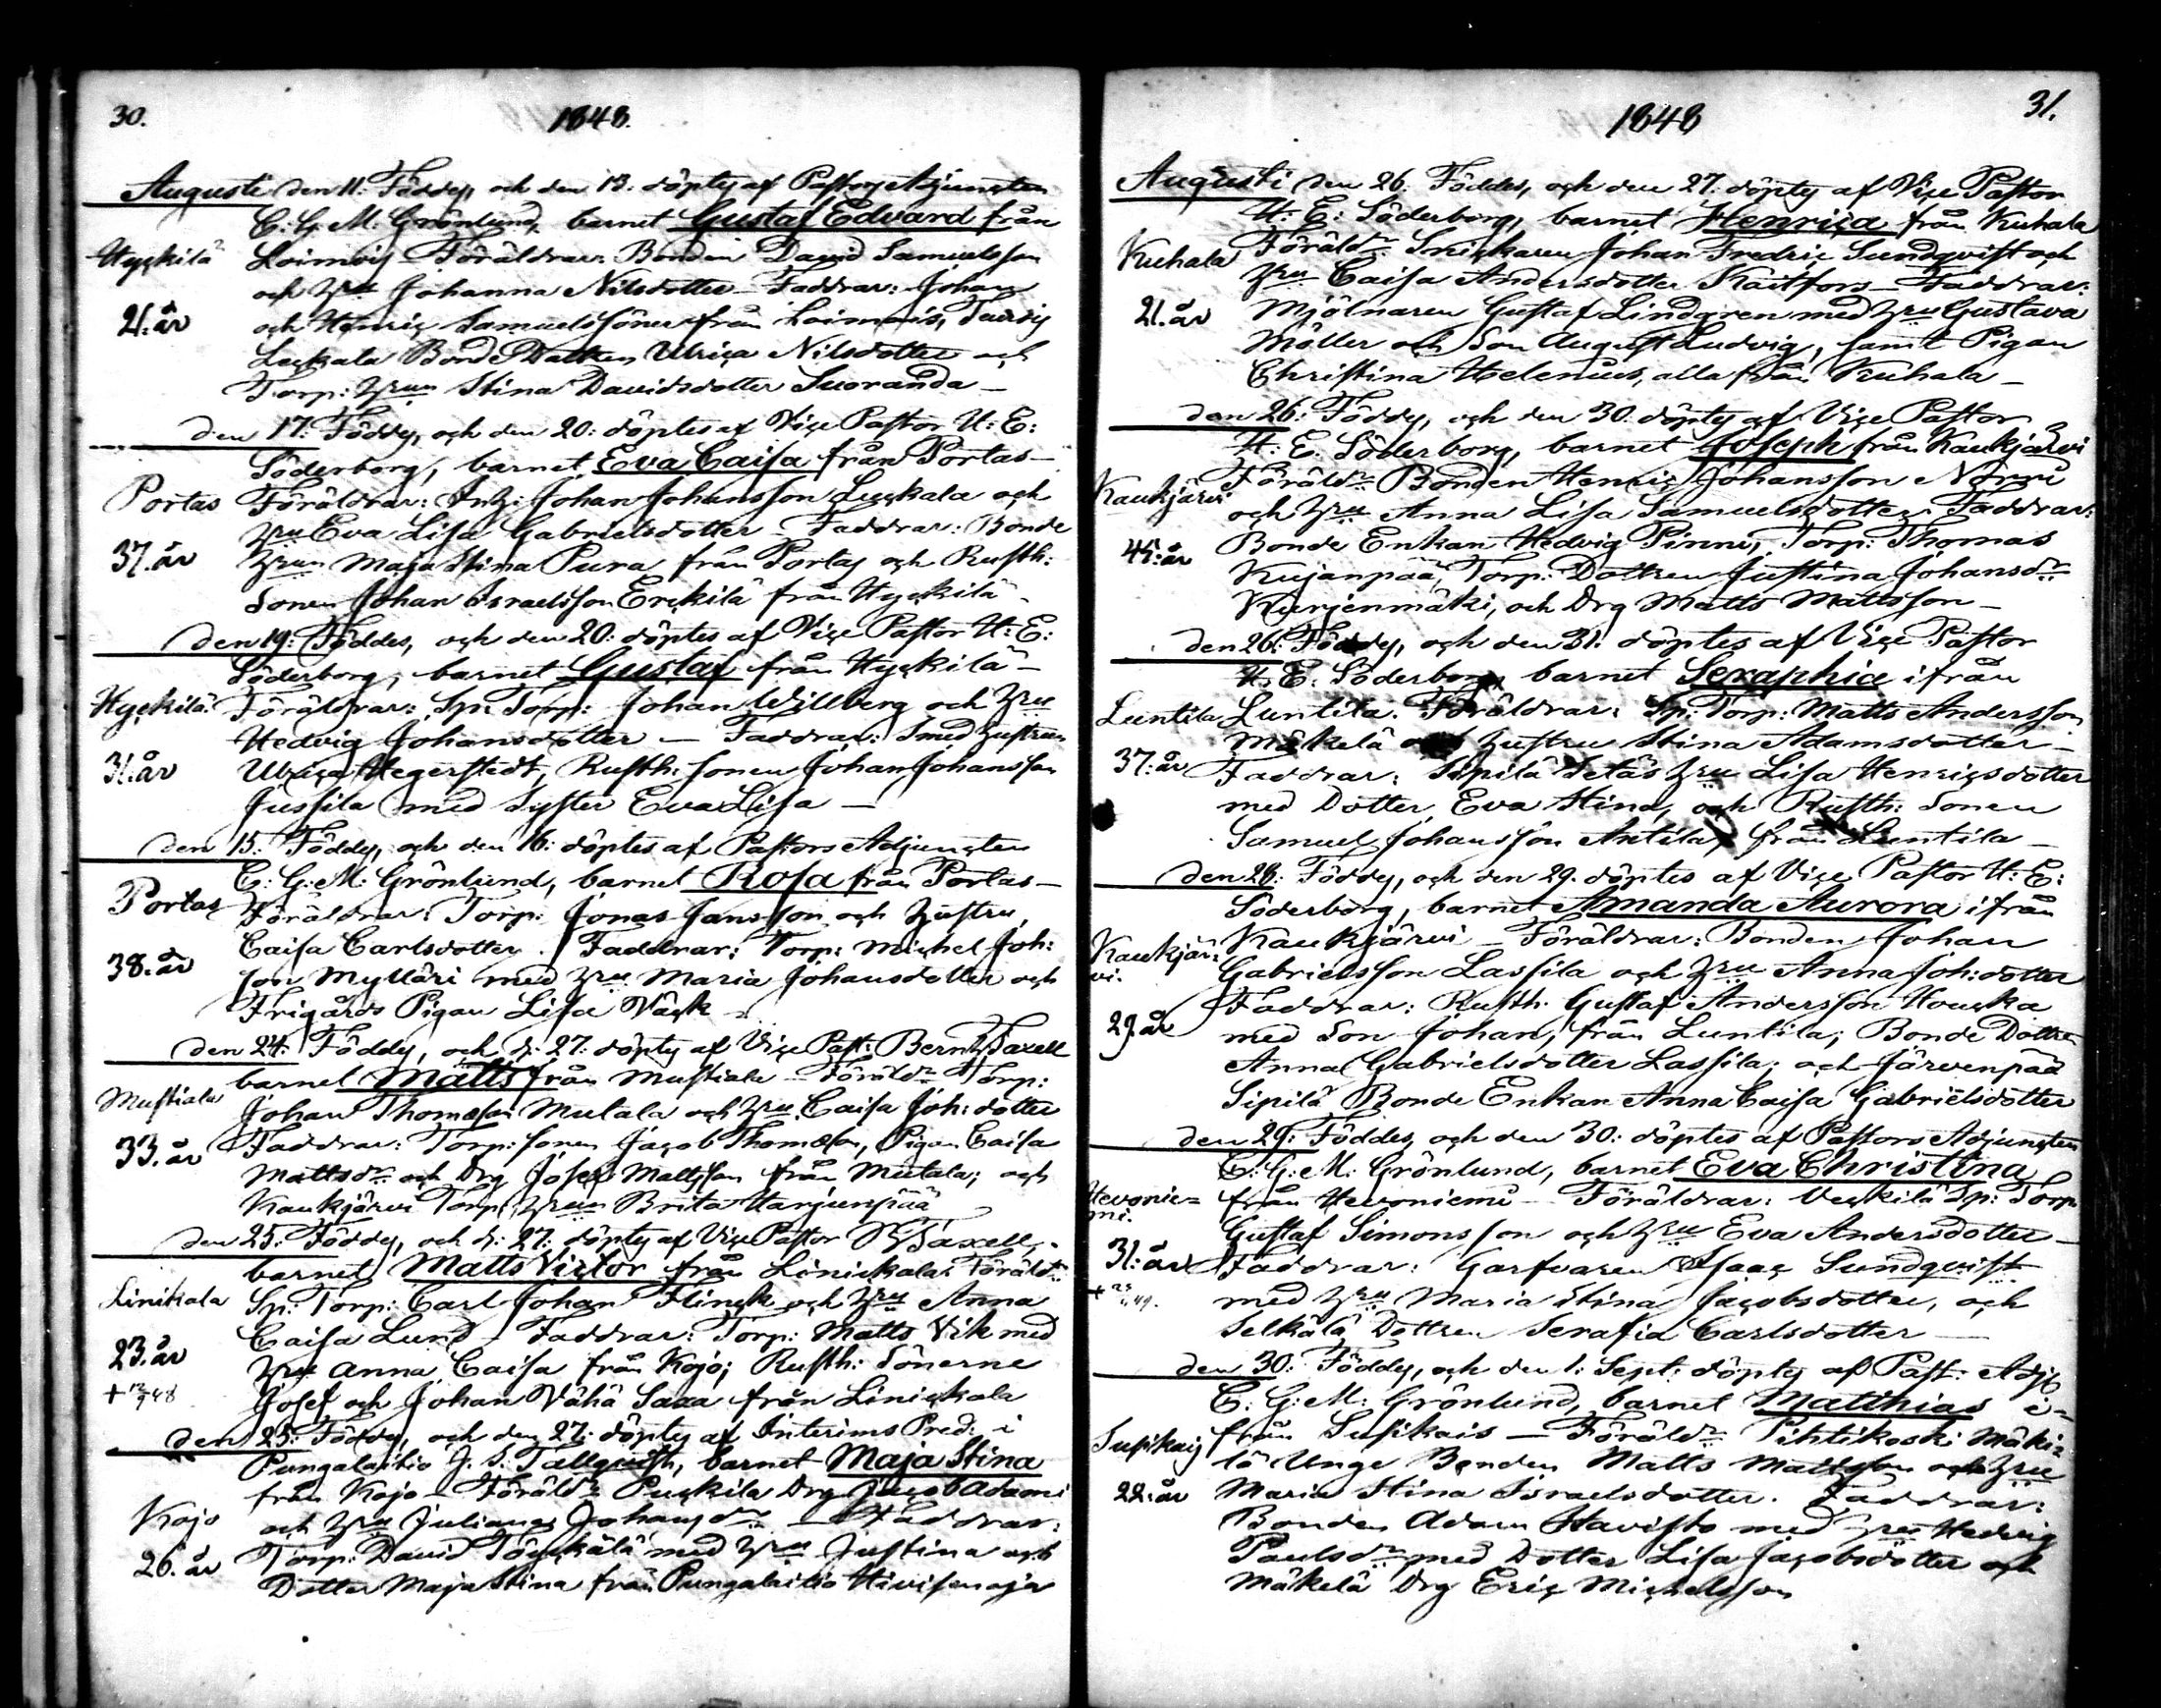 30.
1848.
Augusti den 11: Föddes, och den 13. döptes af Pastors Adjuncten
C: G: M: Grönlund, barnet Gustaf Edvard från
Hyckilä
Loimois Föräldrar: Bonden David Samuelsson
och Hru Johanna Nilsdotter - Faddrar: Johan
21. år
och Henric Samuelssöner från Loimois,
Leckala Bonde Dottren Ulrica Nilsdotter och
Torp: Hrun Stina Davidsdotter Suoranda -
den 17: Föddes, och den 20: döptes af Vice Pastor H: E:
Söderborg, barnet Eva Caisa från Portas -
Portas
Föräldrar: Inh: Johan Johansson Luckala och
Hru Eva Lisa Gabrielsdotter - Faddrar: Bonde
37. år
Hrun Maja Stina Pura från Portas och Rusth:
Sonen Johan Israelsson Erckilä från Hyckilä -
den 19: Föddes, och den 20: döptes af Vice Pastor H: E:
Söderborg, barnet Gustaf från Hyckilä -
Hyckilä
Föräldrar: Sp: Torp: Johan Willberg och Hru
Hedvig Johansdotter - Faddrar: Smed hustrun
31. år
Ulrica Hegerstedt, Rusth: sonen Johan Johansson
Jussila med Syster Eva Lisa -
den 15: Föddes, och den 16: döptes af Pastors Adjuncten
C: G: M: Grönlund, barnet Rosa från Portas -
Portas
Föräldrar: Torp: Jonas Jansson och Hustru
Caisa Carlsdotter. Faddrar: Torp: Michel Joh:
38. år
son Mylläri med Hru Maria Johansdotter och
Frigårds Pigan Lisa Väck -
den 24: Föddes, och d: 27: döptes af Vice Past: Bernh Taxell
barnet Matts från Mustiala - Föräldr Torp:
Mustiala
Johan Thomasson Mutala och Hru Caisa Joh: dotter
33. år
Faddrar: Torp: sonen Jacob Thomasson, Pigan Caisa
Mattsdr och Drg Josep Mattsson från Mutala; och
Kaukjärvi Torp Hrun Brita Harjunpää
den 25: Föddes, och d: 27: döptes af Vice Pastor Taxell,
barnet Matts Victor från Linickala Föräldr
Linikala
Sp: Torp: Carl Johan Flinck och Hru Anna
Caisa Lund - Faddrar: Torp: Matts Vik med
23. år
Hru Anna Caisa från Kojo; Rusth: Sönerne
+ 12/9 48
Josef och Johan Vähä Saxa från Linickala
den 25: Föddes, och den 27: döptes af Interims Pred: i
Pungalaitio J. S. Tallqvist, barnet Maja Stina
från Kojo - Föräldr Puckila Drg Jacob Adams
Kojo
och Hru Juliana Johansdr - Faddrar:
26. år
Torp: David Töyckälä med Hru Justina och
Dotter Maja Stina från Pungalaitio Hiivisenoja
31.
1848
Augusti den 26. Föddes, och den 27. döptes af Vice Pastor
H: E: Söderborg, barnet Henrica från Kuhala
Kuhala
Föräldr Snickaren Johan Fredric Sundqvist och
Hru Caisa Andersdotter Kaitfors - Faddrar:
21. år
Mjölnaren Gustaf Lindgren med Hru Gustava
Möller och Son August Ludvig, samt Pigan
Christina Helenius, alla från Kuhala -
den 26: Föddes, och den 30. döptes af Vice Pastor
H. E. Söderborg, barnet Joseph från Kaukjärvi
Kaukjärvi
Föräldr Bonden Henric Johansson Nörri
och Hru Anna Lisa Samuelsdotter Faddrar:
Bonde Enkan Hedvig Pinni, Torp: Thomas
Kujanpää, Torp: Dottren Justina Johansdr
Kurjenmäki, och Drg Matts Mattsson -
den 26. Föddes, och den 31. döptes af Vice Pastor
H. E. Söderborg barnet Seraphia ifrån
Luntila
Luntila. Föräldrar: Sp: Torp: Matts Andersson
Mäkelä och Hustru Stina Adamsdotter -
37: år
Faddrar: Sipilä Setäs Hru Lisa Henricsdotter
med Dotter Eva Stina, och Rusth: Sonen
Samuel Johansson Antila, från Luntila -
den 28: Föddes, och den 29. döptes af Vice Pastor H: E:
Söderborg, barnet Amanda Aurora ifrån
Kaukjär=
vi.
Kaukjärvi - Föräldrar: Bonden Johan
Gabrielsson Lassila och Hru Anna Joh: dotter
29. år
Faddrar: Rusth: Gustaf Andersson Houcka
med Son Johan, från Luntila; Bonde Dottren
Anna Gabrielsdotter Lassila; och Järvenpää
Sipilä Bonde Enkan Anna Caisa Gabrielsdotter
den 29: Föddes, och den 30: döptes af Pastors Adjuncten
C: G: M: Grönlund, barnet Eva Christina
Hevonie=
mi.
från Hevoniemi - Föräldrar: Veckilä Sp: Torp
Gustaf Simonsson och Hru Eva Andersdotter -
31: år
Faddrar: Garfvaren Isaac Sundqvist
med Hru Maria Stina Jacobsdotter, och
Selkälä Dottren Serafia Carlsdotter -
den 30: Föddes, och den 1: Sept: döptes af Past: Adj:
C. G: M: Grönlund, barnet Matthias i=
Susikais
från Susikais - Föräldr Pihtikoski Mäki=
lä Unge Bonden Matts Mattsson och Hru
22: år
Maria Stina Israelsdotter. Faddrar:
Bonden Adam Havisto med Hru Hedvig
Paulsdr med Dotter Lisa Jacobsdotter och
Mäkelä Drg Eric Michelsson